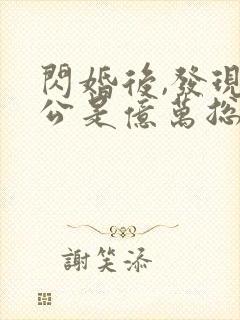 閃婚後,發現
公是億萬総
謝笑添